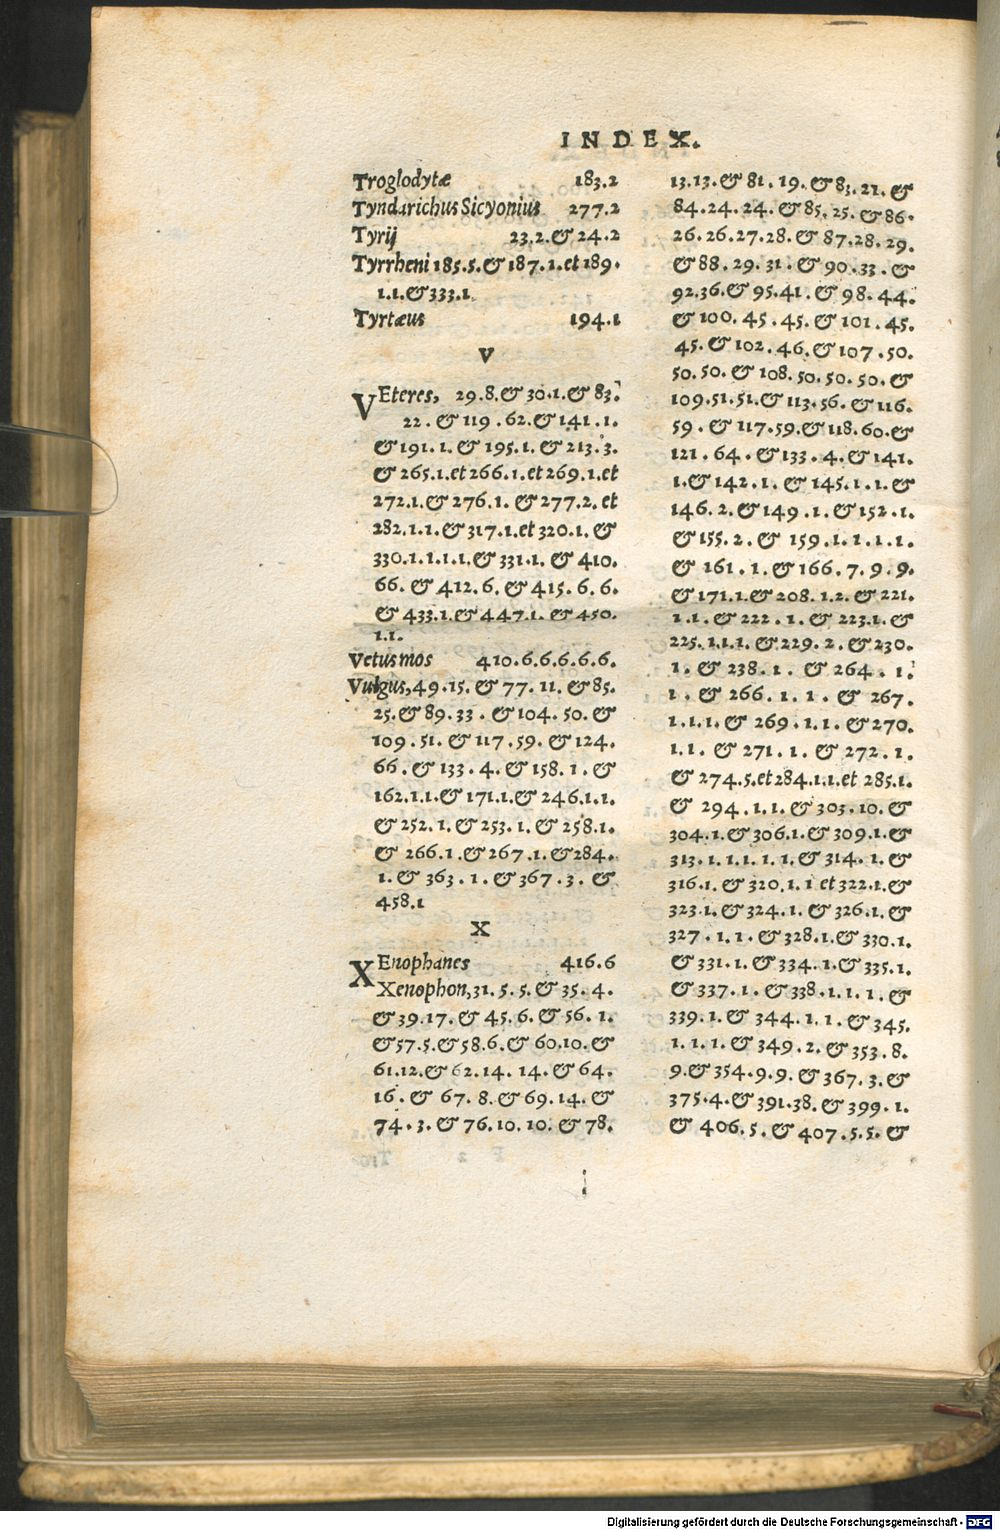 INDEX.
Troglodytæ 183.2
Tyndarichus Sicyonius 277.2
Tyrij 23.2.& 24.2
Tyrrheni 185.5.& 187.1.et 189.
1.1.& 333.1.
Tyrtæus 194.1
V
VEteres, 29.8.& 30.1.& 83.
22. & 119.62.& 141.1.
& 191.1.& 195.1.& 213.3.
& 265.1.et 266.1.et 269.1.et
272.1.& 276.1. & 277.2. et
282.1.1.& 317.1.et 320.1. &
330.1.1.1.1.& 331.1. & 410.
66. & 412.6. & 415.6.6.
& 433.1.& 447.1. & 450.
1.1.
Vetus mos 410.6.6.6.6.6.
Vulgus, 49.15. & 77.11. & 85.
25.& 89.33. & 104.50. &
109.51. & 117.59. & 124.
66. & 133.4. & 158.1. &
162.1.1.& 171.1.& 246.1.1.
& 252.1. & 253.1. & 258.1.
& 266.1.& 267.1.& 284.
1.& 363.1. & 367.3. &
458.1
X
XEnophanes 416.6
Xenophon, 31.5.5. & 35.4.
& 39.17. & 45.6. & 56.1.
& 57.5.& 58.6.& 60.10.&
61.12.& 62.14.14. & 64.
16. & 67.8. & 69.14. &
74.3. & 76.10.10. & 78.
13.13.& 81.19. & 83.21. &
84.24.24. & 85.25. & 86.
26.26.27.28. & 87.28.29.
& 88.29.31. & 90.33. &
92.36.& 95.41. & 98.44.
& 100.45.45. & 101.45.
45.& 102.46.& 107.50.
50.50. & 108.50.50.50. &
109.51.51.& 113.56. & 116.
59. & 117.59.& 118.60.&
121.64. & 133.4. & 141.
1.& 142.1. & 145.1.1. &
146.2.& 149.1. & 152.1.
& 155.2. & 159.1.1.1.1.
& 161.1. & 166.7.9.9.
& 171.1.& 208.1.2. & 221.
1.1. & 222.1. & 223.1. &
225.1.1.1. & 229.2. & 230.
1. & 238.1. & 264.1.
1. & 266.1.1. & 267.
1.1.1.& 269.1.1. & 270.
1.1. & 271.1. & 272.1.
& 274.5.et 284.1.1.et 285.1.
& 294.1.1. & 303.10. &
304.1.& 306.1.& 309.1.&
313.1.1.1.1.1.& 314.1. &
316.1. & 320.1.1 et 322.1.&
323.1.& 324.1. & 326.1. &
327.1.1. & 328.1.& 330.1.
& 331.1. & 334.1.& 335.1.
& 337.1. & 338.1.1.1. &
339.1.& 344.1.1. & 345.
1.1.1. & 349.2. & 353.8.
9.& 354.9.9. & 367.3. &
375.4.& 391.38. & 399.1.
& 406.5. & 407.5.5. &
Digitalisierung gefördert durch die Deutsche Forschungsgemeinschaft - DFG